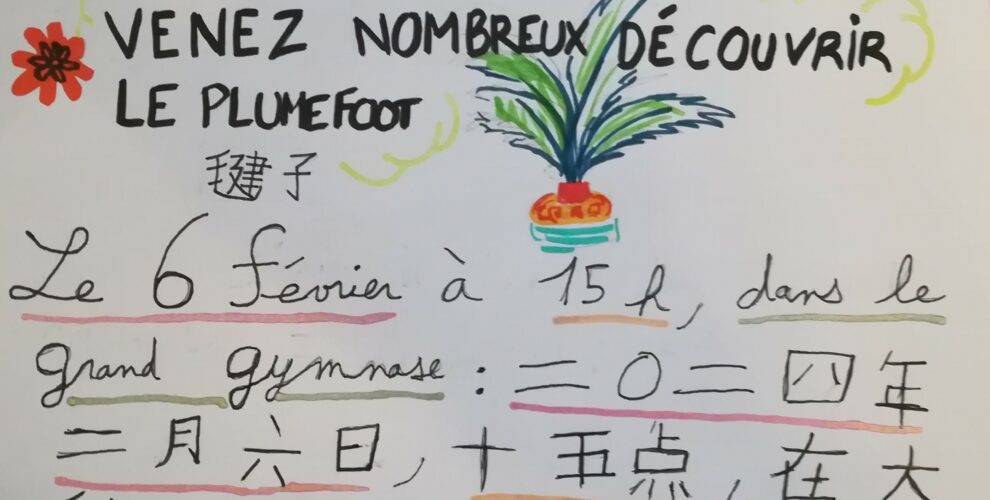 VENEZ NOMBREUX DÉCOUVRIR
LE PLUMEFOOT
毽子
Le 6 février à 15 h, dans le
grand gymnase : 二〇二四年
二月六日, 十五点, 在大